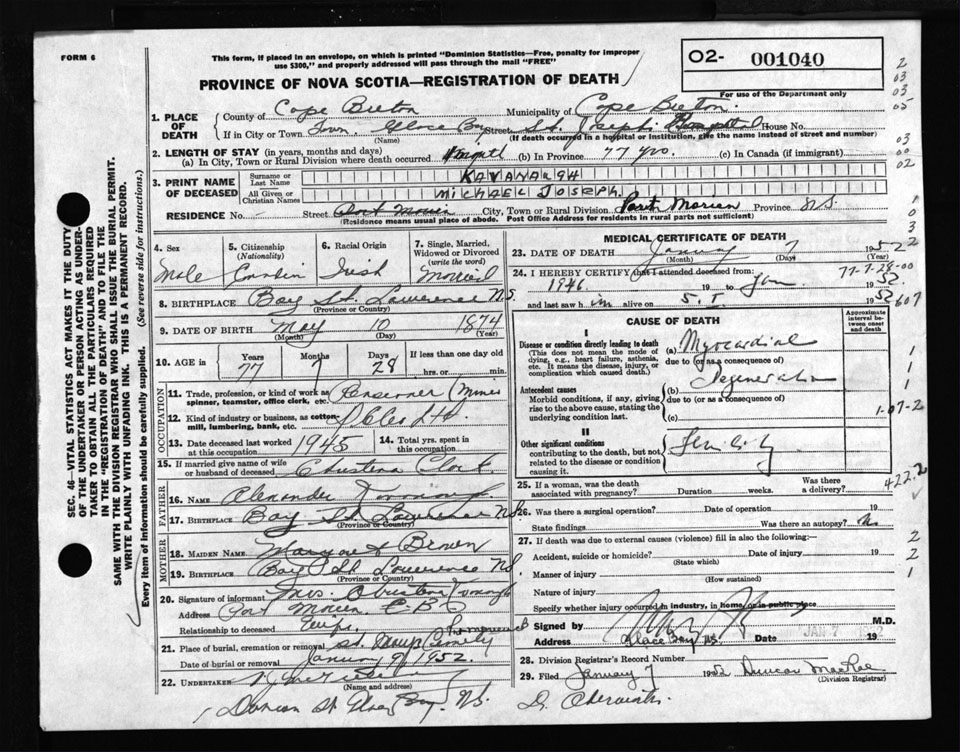 FORM 6
This form, if placed in an envelope, on which is printed "Dominion Statistics—Free, penalty for improper
use $300," and properly addressed will pass through the mail "FREE"
O2- 001040
For use of the Department only
PROVINCE OF NOVA SCOTIA—REGISTRATION OF DEATH
1. PLACE OF DEATH
County of Cape Breton Municipality of Cape Breton
If in City or Town Town Glace Bay Street St. Joseph's Hospital House No.
(Name) (If death occurred in a hospital or institution, give the name instead of street and number)
2. LENGTH OF STAY (in years, months and days)
(a) In City, Town or Rural Division where death occurred (b) In Province 77 yrs. (c) In Canada (if immigrant)
3. PRINT NAME OF DECEASED
Surname or Last Name KAVANAUGH
All Given or Christian Names MICHAEL JOSEPH.
RESIDENCE No. - Street Port Morien City, Town or Rural Division Port Morien Province N.S.
(Residence means usual place of abode. Post Office Address for residents in rural parts not sufficient)
4. Sex
Male
5. Citizenship (Nationality)
6. Racial Origin
Irish
7. Single, Married, Widowed or Divorced (write the word)
Married
8. BIRTHPLACE Bay St. Lawrence N.S.
(Province or Country)
9. DATE OF BIRTH May 10 1874
(Month) (Day) (Year)
10. AGE in Years 77 Months 7 Days 28 If less than one day old hrs. or min.
OCCUPATION
11. Trade, profession, or kind of work as spinner, teamster, office clerk, etc. Pensioner (Miner
12. Kind of industry or business, as cotton-mill, lumbering, bank, etc.
13. Date deceased last worked at this occupation 1945
14. Total yrs. spent in this occupation
15. If married give name of wife or husband of deceased Christena Clark
FATHER
16. NAME Alexander Kavanaugh
17. BIRTHPLACE Bay St. Lawrence N.S.
(Province or Country)
MOTHER
18. MAIDEN NAME Margaret Brown
19. BIRTHPLACE Bay St. Lawrence N.S.
(Province or Country)
20. Signature of informant Mrs. Christena Kavanaugh
Address Port Morien C.B.
Relationship to deceased Wife
21. Place of burial, cremation or removal St. Mary's Cemetery
Date of burial or removal January 9, 1952.
22. UNDERTAKER
(Name and address)
St. Glace Bay. N.S.
MEDICAL CERTIFICATE OF DEATH
23. DATE OF DEATH January 7 1952
(Month) (Day)
24. I HEREBY CERTIFY that I attended deceased from
1946 19 to Jan 1952
and last saw him alive on 5.1 1952
CAUSE OF DEATH
Approximate interval between onset and death
I
Disease or condition directly leading to death
(This does not mean the mode of dying, e.g., heart failure, asthenia, etc. It means the disease, injury, or complication which caused death.)
(a) Myocardial
due to (or as a consequence of)
Degeneration
Antecedent causes
Morbid conditions, if any, giving rise to the above cause, stating the underlying condition last.
(b)
due to (or as a consequence of)
(c)
II
Other significant conditions contributing to the death, but not related to the disease or condition causing it.
Senility
25. If a woman, was the death associated with pregnancy? Duration weeks. Was there a delivery?
26. Was there a surgical operation? Date of operation 19
State findings Was there an autopsy? No
27. If death was due to external causes (violence) fill in also the following:—
Accident, suicide or homicide? Date of injury 19
(State which)
Manner of injury
(How sustained)
Nature of injury
Specify whether injury occurred in industry, in home, or in public place
Signed by M.D.
Address Glace Bay N.S. Date JAN 7 19
28. Division Registrar's Record Number
29. Filed January 7 1952 Duncan MacRae
(Division Registrar)
77-7-28-00
607
1-07-2
422.2
SEC. 46—VITAL STATISTICS ACT MAKES IT THE DUTY
OF THE UNDERTAKER OR PERSON ACTING AS UNDER-
TAKER TO OBTAIN ALL THE PARTICULARS REQUIRED
IN THE "REGISTRATION OF DEATH" AND TO FILE THE
SAME WITH THE DIVISION REGISTRAR WHO SHALL ISSUE THE BURIAL PERMIT.
WRITE PLAINLY WITH UNFADING INK. THIS IS A PERMANENT RECORD.
Every item of information should be carefully supplied. (See reverse side for instructions.)